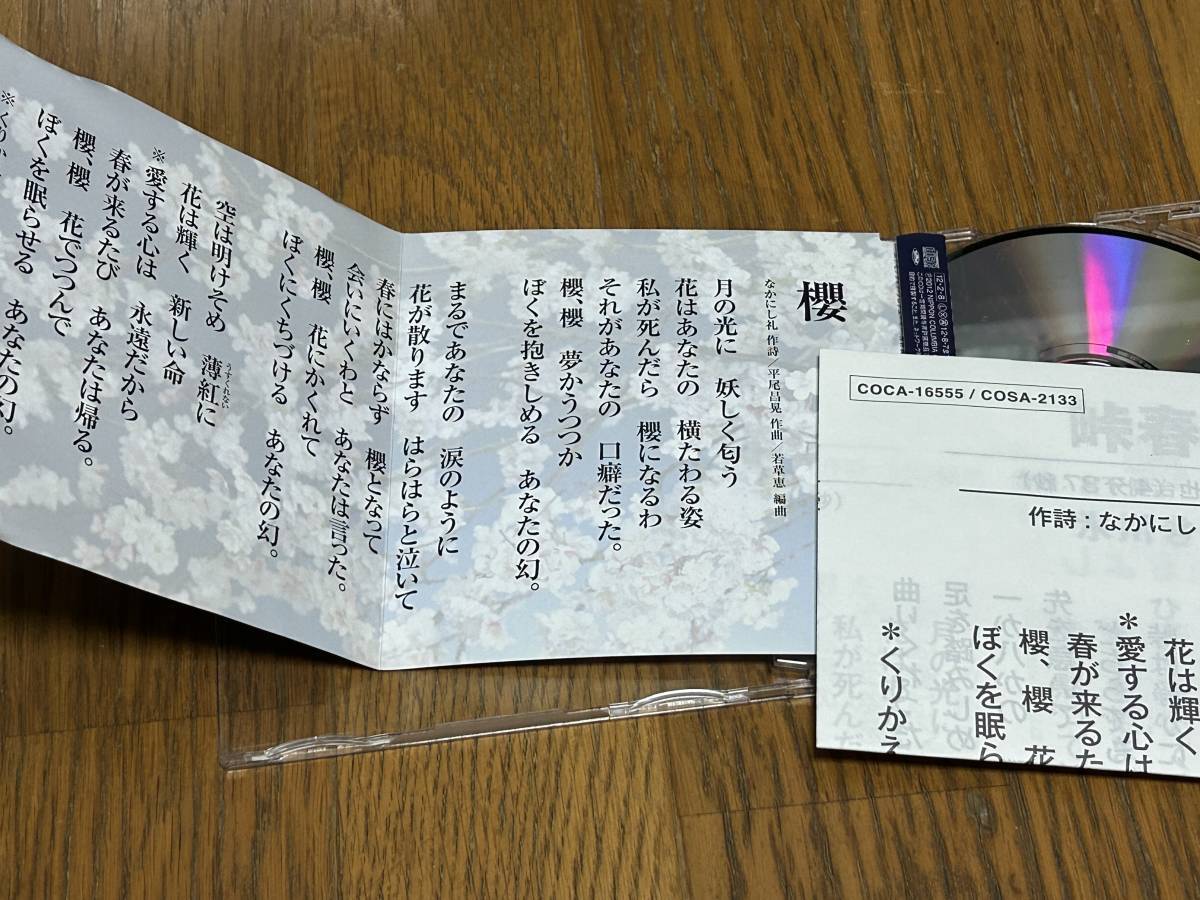 櫻
なかにし礼 作詩／平尾昌晃 作曲／若草恵 編曲
月の光に 妖しく匂う
花はあなたの 横たわる姿
私が死んだら 櫻になるわ
それがあなたの 口癖だった。
櫻、櫻 夢かうつつか
ぼくを抱きしめる あなたの幻。
まるであなたの 涙のように
花が散ります はらはらと泣いて
春にはかならず 櫻となって
会いにいくわと あなたは言った。
櫻、櫻 花にかくれて
ぼくにくちづける あなたの幻。
空は明けそめ 薄紅に
うすくれない
花は輝く 新しい命
※愛する心は 永遠だから
春が来るたび あなたは帰る。
櫻、櫻 花でつつんで
ぼくを眠らせる あなたの幻。
※くりか
12・2・8
COCA-16555 / COSA-2133
作詩：なかにし
花は輝く
＊愛する心は
春が来るた
櫻、櫻 花
ぼくを眠ら
＊くりかえ